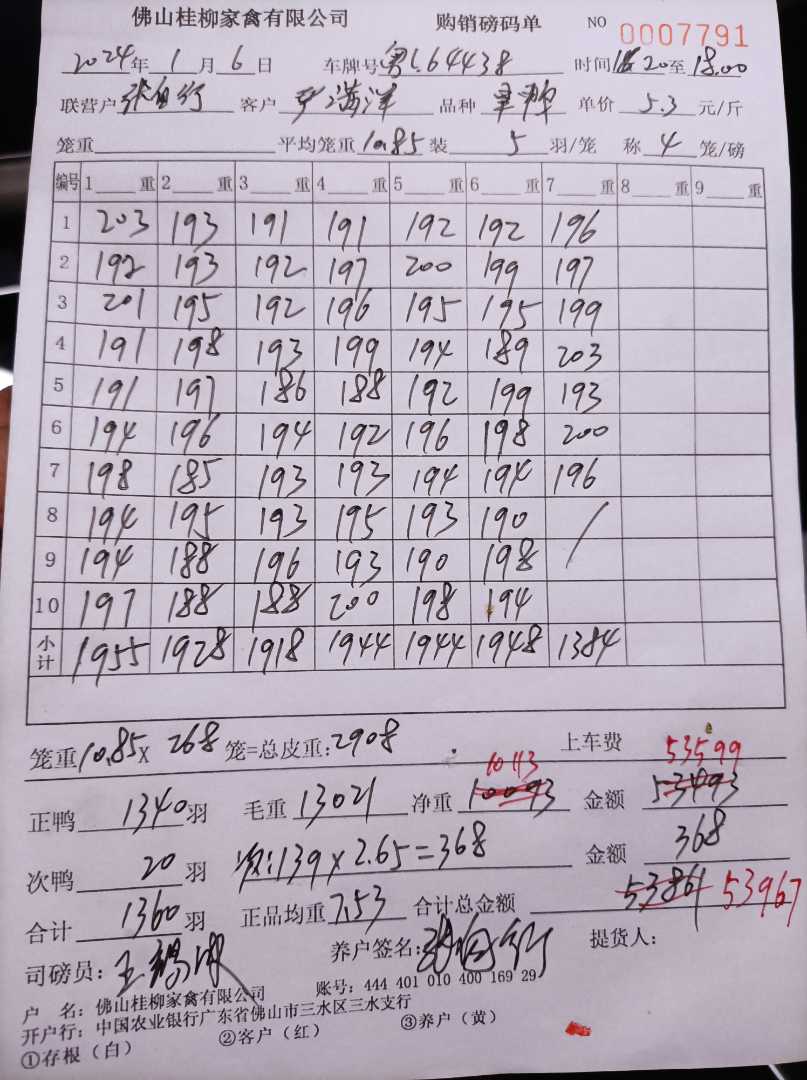 佛山桂柳家禽有限公司 购销磅码单 NO 0007791
2024年 1月 6日 车牌号 粤L64438 时间 20至 18.00
联营户 客户 满洋 品种 单价 5.3 元/斤
笼重 平均笼重 10.85 装 5 羽/笼 称 4 笼/磅
编号 1 重 2 重 3 重 4 重 5 重 6 重 7 重 8 重 9 重
1 203 193 191 191 192 192 196
2 192 193 192 197 200 199 197
3 201 195 192 196 195 195 199
4 191 198 193 199 194 189 203
5 191 197 186 188 192 199 193
6 194 196 194 192 196 198 200
7 198 185 193 193 194 194 196
8 194 195 193 195 193 190 /
9 194 188 196 193 190 198
10 197 188 188 200 198 194
小计 1955 1928 1918 1944 1944 1948 1384
笼重 10.85 X 268 笼=总皮重: 2908 上车费
10113 53599
正鸭 1340 羽 毛重 13021 净重 10093 金额 53493
次鸭 20 羽 次: 139 x 2.65 = 368 金额 368
合计 1360 羽 正品均重 7.53 合计总金额 53861 53967
司磅员: 王 养户签名: 提货人:
户 名: 佛山桂柳家禽有限公司 账号: 444 401 010 400 169 29
开户行: 中国农业银行广东省佛山市三水区三水支行
①存根(白) ②客户(红) ③养户(黄)